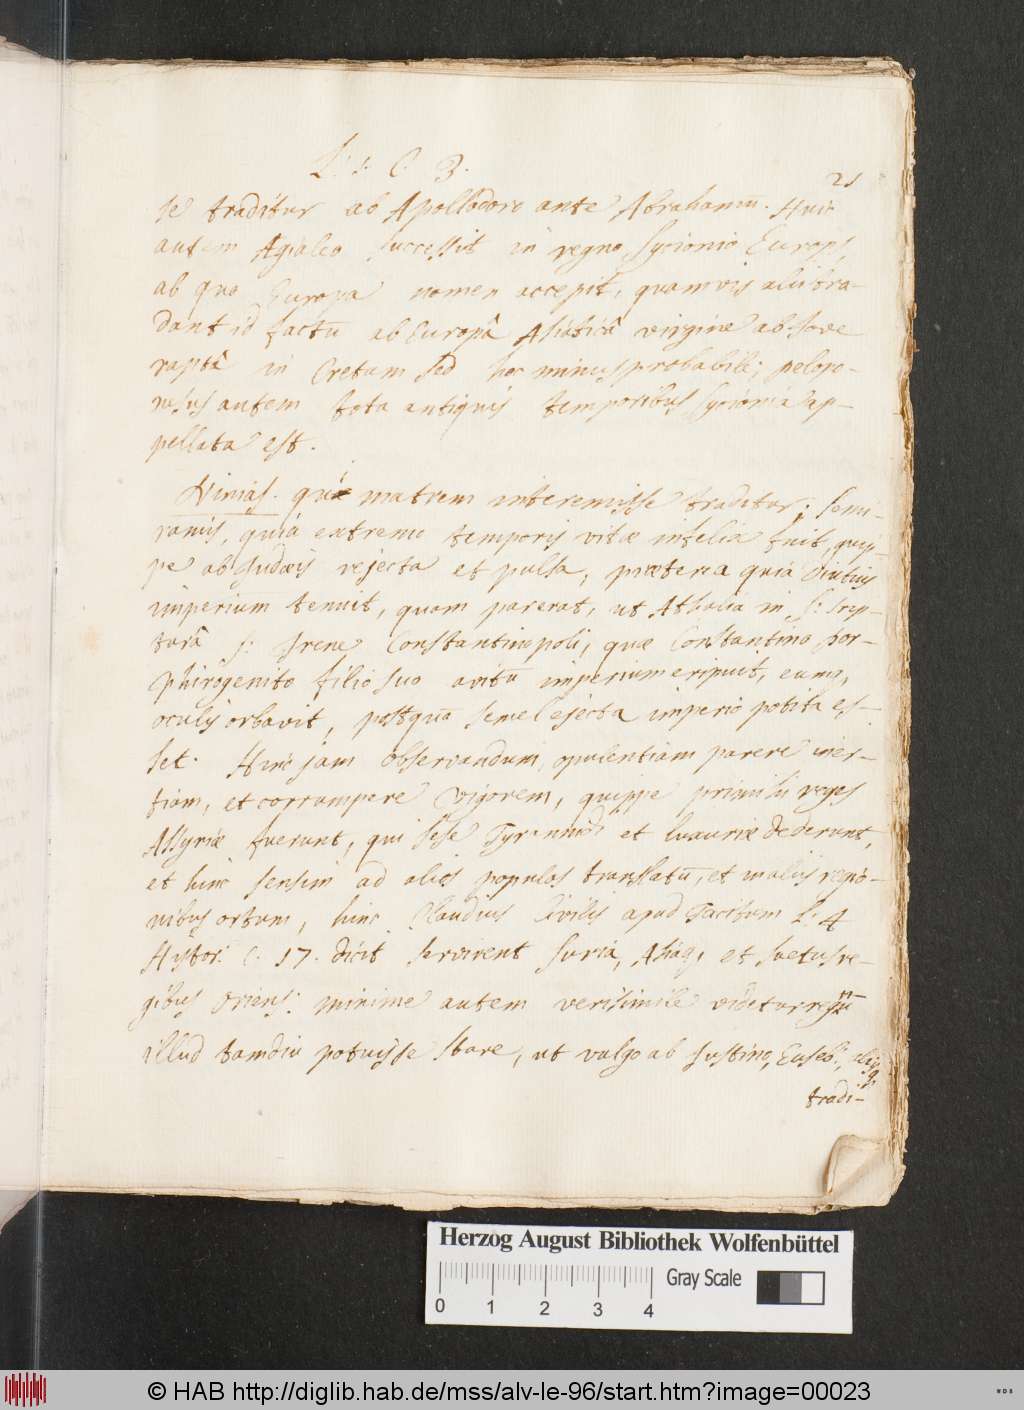 L: 1. C. 3.
21
se traditur ab Apollodoro ante Abrahamū. Huic
autem Agialeo successit in regno Sycionio Europs,
ab quo Europa nomen accepit, quamvis alii tra-
dant id factū ab Europâ Asiaticâ virgine ab Jove
raptâ in Cretam sed hoc minus probabile; pelopo-
nesus autem tota antiquis temporibus Sycionia ap-
pellata est.
Ninias. qui matrem interemisse traditur; Semi-
ramis, quia extremo temporis vitæ infelix fuit, quip-
pe ab Judæis rejecta et pulsa, præterea quia diutius
imperium tenuit, quam parerat, ut Athalia in S: Scrip-
turâ s: Irene Constantinopoli, quæ Constantino Por-
phirogenito filio suo avitū imperium eripuit, eumq,
oculis orbavit, postquā semel ejecta imperio potita es-
set. Hinc jam observandum, opulentiam parere iner-
tiam, et corrumpere vigorem, quippe primi sui reges
Assyriæ fuerunt, qui sese Tyrannidi et luxuriæ dederunt,
et hinc sensim ad alios populos translatū, et in aliis regio-
nibus ortum, hinc Claudius Civilis apud Tacitum L: 4
Histor: C. 17. dicit servirent Suria, Asiaq, et suetus re-
gibus Oriens: minime autem verisimile videtur regnū
illud tamdiu potuisse stare, ut vulgo ab Justino, Euseb:, aliisq,
tradi-
Herzog August Bibliothek Wolfenbüttel
Gray Scale
0 1 2 3 4
© HAB http://diglib.hab.de/mss/alv-le-96/start.htm?image=00023